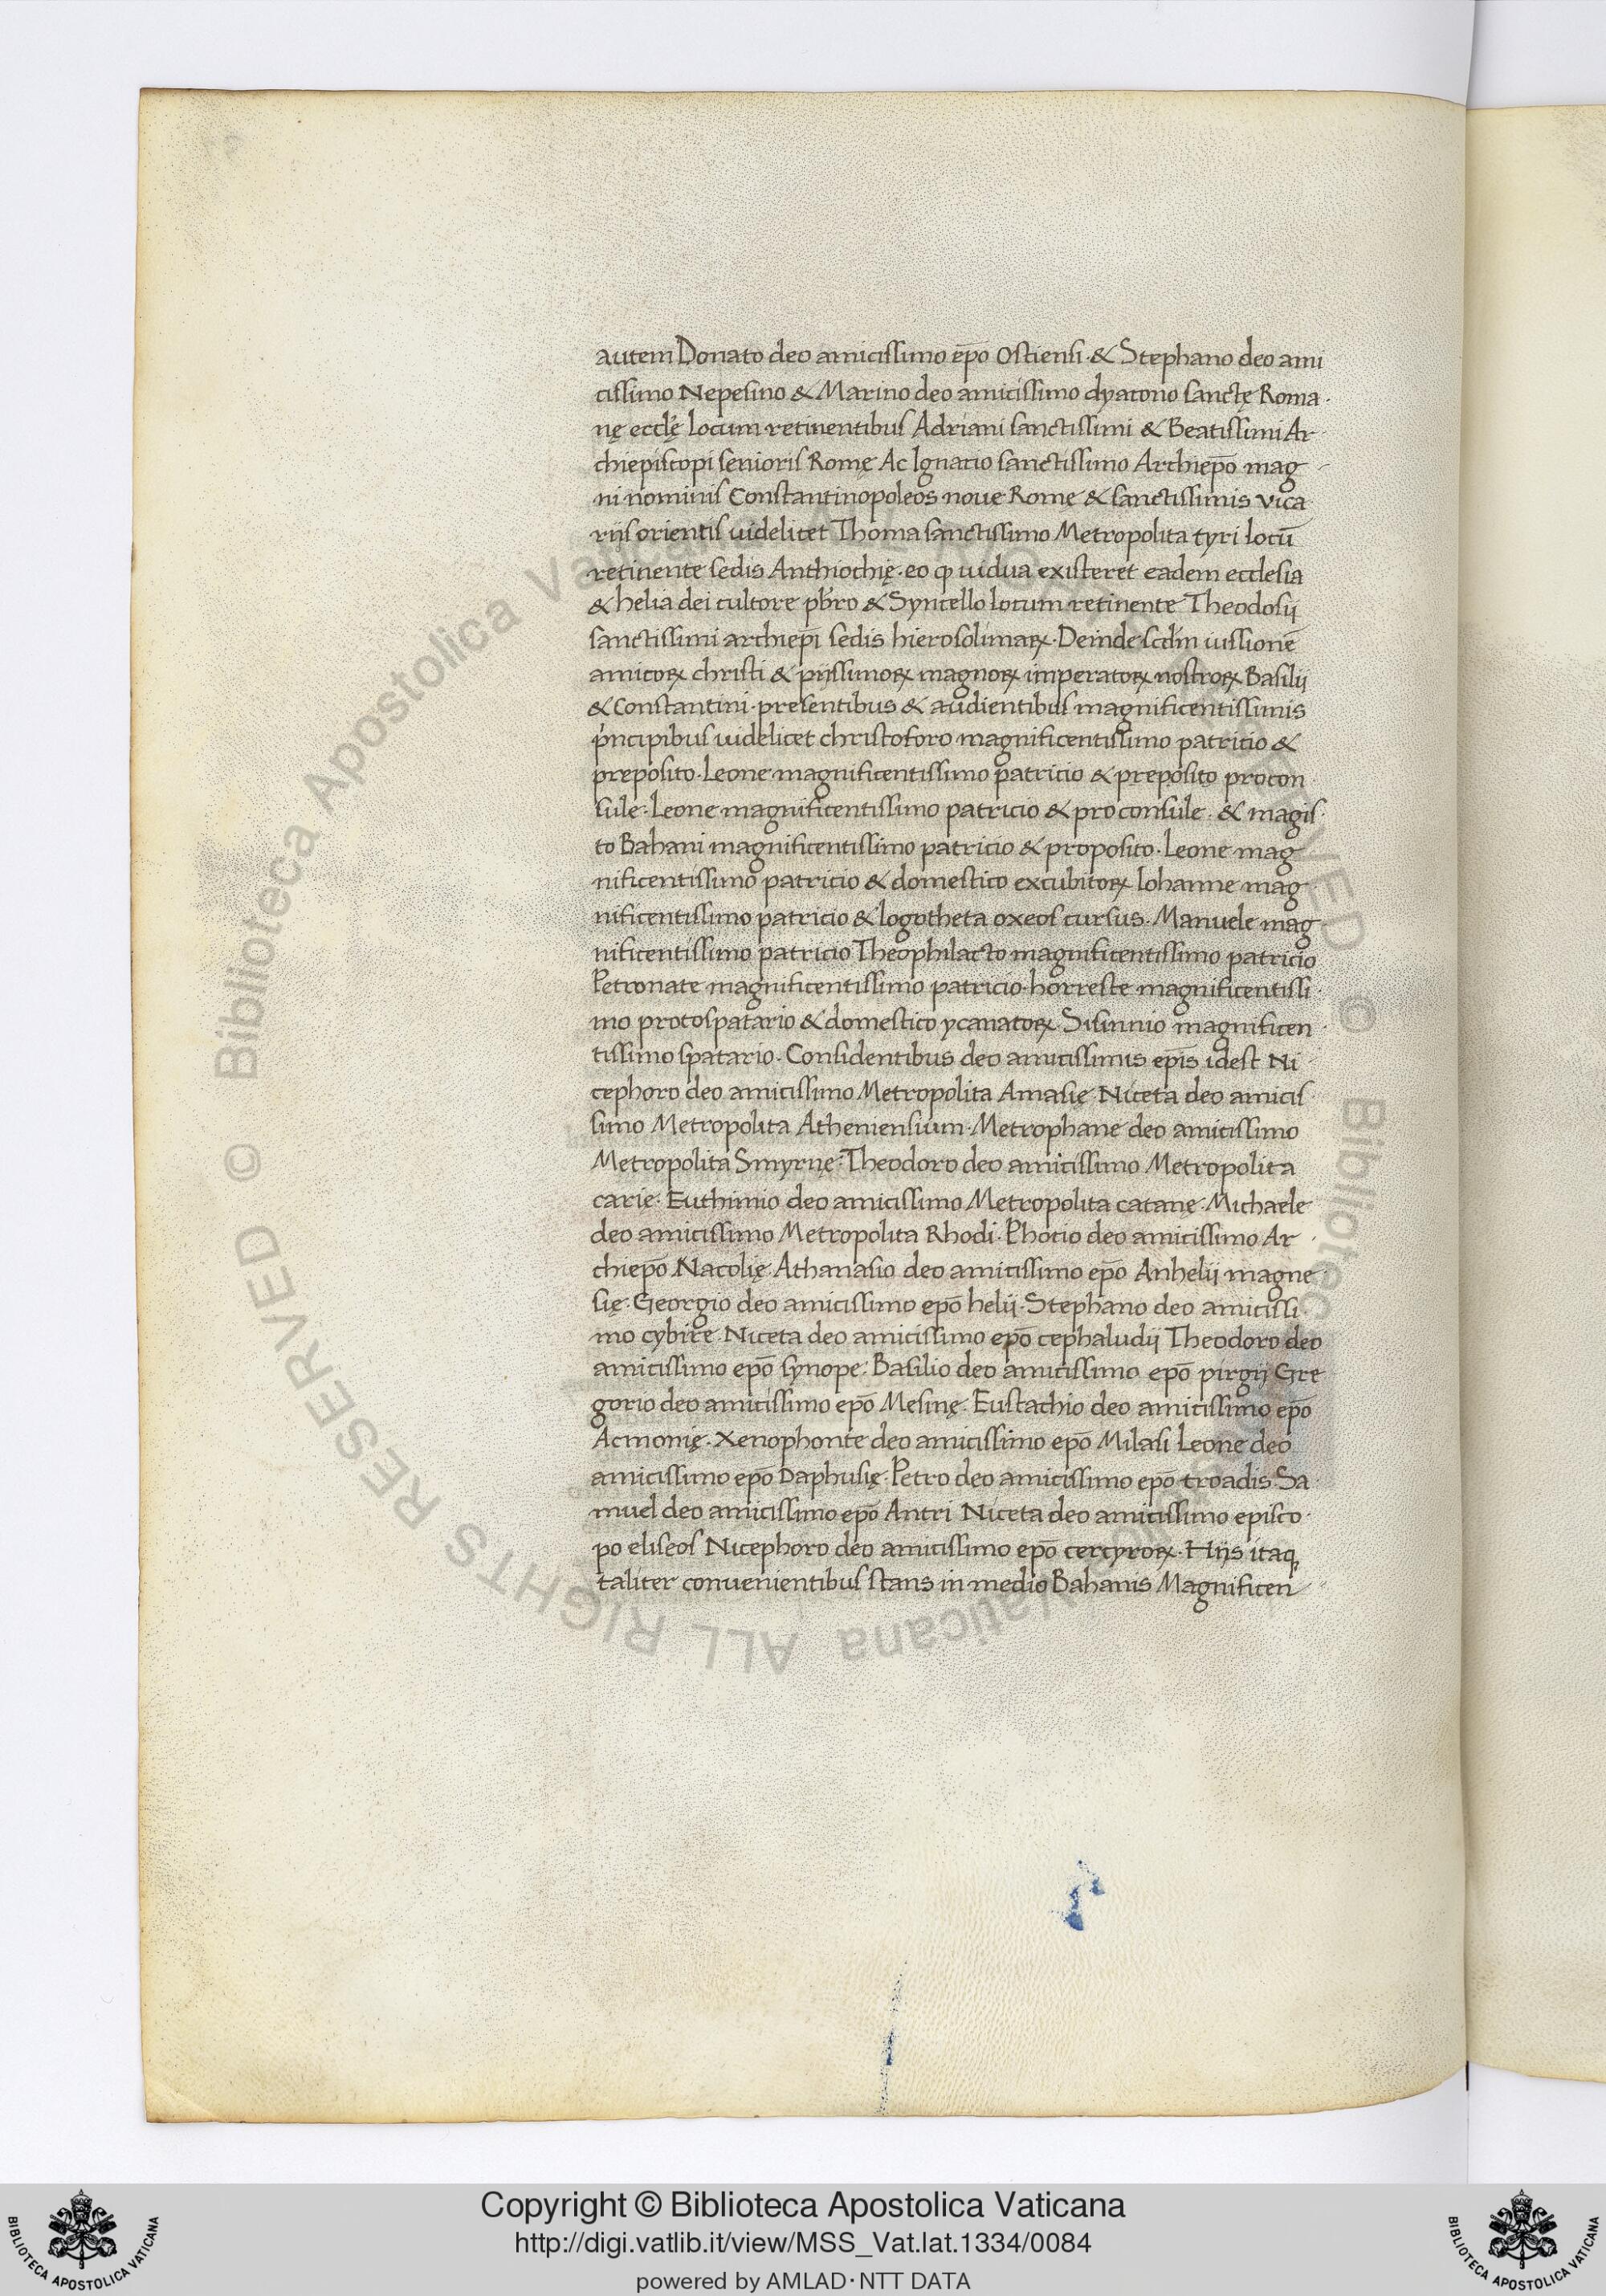 autem Donato deo amicissimo ep̄o Ostiensi · & Stephano deo ami
cissimo Nepesino & Marino deo amicissimo dyacono sanctę Roma ·
nę eccl̄ę locum retinentibus Adriani sanctissimi & Beatissimi Ar
chiepiscopi senioris Romę Ac Ignatio sanctissimo Archiep̄o mag
ni nominis Constantinopoleos noue Rome & sanctissimis vica
rijs orientis uidelicet Thoma sanctissimo Metropolita tyri locū
retinente sedis Anthiochię · eo ꝙ uidua existeret eadem ecclesia
& helia dei cultore pb̄ro & Syncello locum retinente Theodosij
sanctissimi archiep̄i sedis hierosolimaꝝ · Deinde scd̄m iussionē
amicoꝝ christi & pijssimoꝝ magnoꝝ imperatoꝝ nostroꝝ Basilij
& Constantini · presentibus & audientibus magnificentissimis
p̍ncipibus uidelicet christoforo magnificentissimo patricio &
preposito · Leone magnificentissimo patricio & preposito procon
sule · Leone magnificentissimo patricio & proconsule · & magis
to Bahani magnificentissimo patricio & proposito · Leone mag
nificentissimo patricio & domestico excubitoꝝ Iohanne mag
nificentissimo patricio & logotheta oxeos cursus · Manuele mag
nificentissimo patricio Theophilacto magnificentissimo patricio
Petronate magnificentissimo patricio · horreste magnificentissi ·
mo protospatario & domestico ycanatoꝝ · Sisinnio magnificen ·
tissimo spatario · Considentibus deo amicissimis ep̄is idest Ni
cephoro deo amicissimo Metropolita Amasię Niceta deo amicis
simo Metropolita Atheniensium · Metrophane deo amicissimo
Metropolita Smyrnę · Theodoro deo amicissimo Metropolita
carie · Euthimio deo amicissimo Metropolita catanę · Michaele
deo amicissimo Metropolita Rhodi · Photio deo amicissimo Ar ·
chiep̄o Nacolię Athanasio deo amicissimo ep̄o Anhelij magne
się · Georgio deo amicissimo ep̄o helij · Stephano deo amicissi ·
mo cybire Niceta deo amicissimo ep̄o cephaludij Theodoro deo
amicissimo ep̄o synope · Basilio deo amicissimo ep̄o pirgij Gre
gorio deo amicissimo ep̄o Mesinę · Eustachio deo amicissimo ep̄o
Acmonię · Xenophonte deo amicissimo ep̄o Milasi Leone deo
amicissimo ep̄o Daphusię · Petro deo amicissimo ep̄o troadis Sa
muel deo amicissimo ep̄o Antri Niceta deo amicissimo episco ·
po eliseos Nicephoro deo amicissimo ep̄o cercyroꝝ · Hijs itaqꝫ
taliter conuenientibus stans in medio Bahanis Magnificen
© Biblioteca Apostolica Vaticana ALL RIGHTS RESERVED
Copyright © Biblioteca Apostolica Vaticana
http://digi.vatlib.it/view/MSS_Vat.lat.1334/0084
powered by AMLAD·NTT DATA
BIBLIOTECA APOSTOLICA VATICANA
BIBLIOTECA APOSTOLICA VATICANA